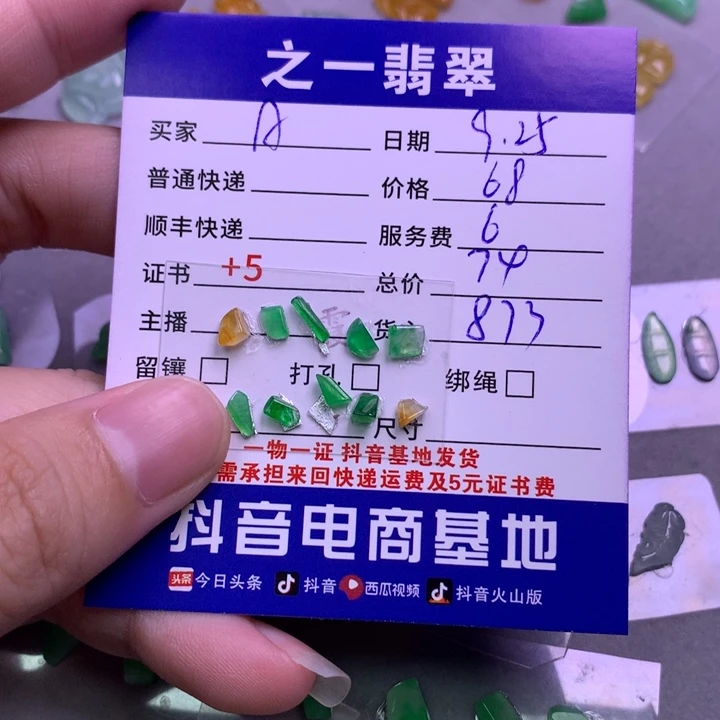 之一翡翠
买家 A 日期 9.25
普通快递 价格 68
顺丰快递 服务费 6
证书 +5 总价 74
主播 货主 873
留镶 □ 打孔 □ 绑绳 □
尺寸
一物一证 抖音基地发货
需承担来回快递运费及5元证书费
抖音电商基地
头条 今日头条 抖音 西瓜视频 抖音火山版